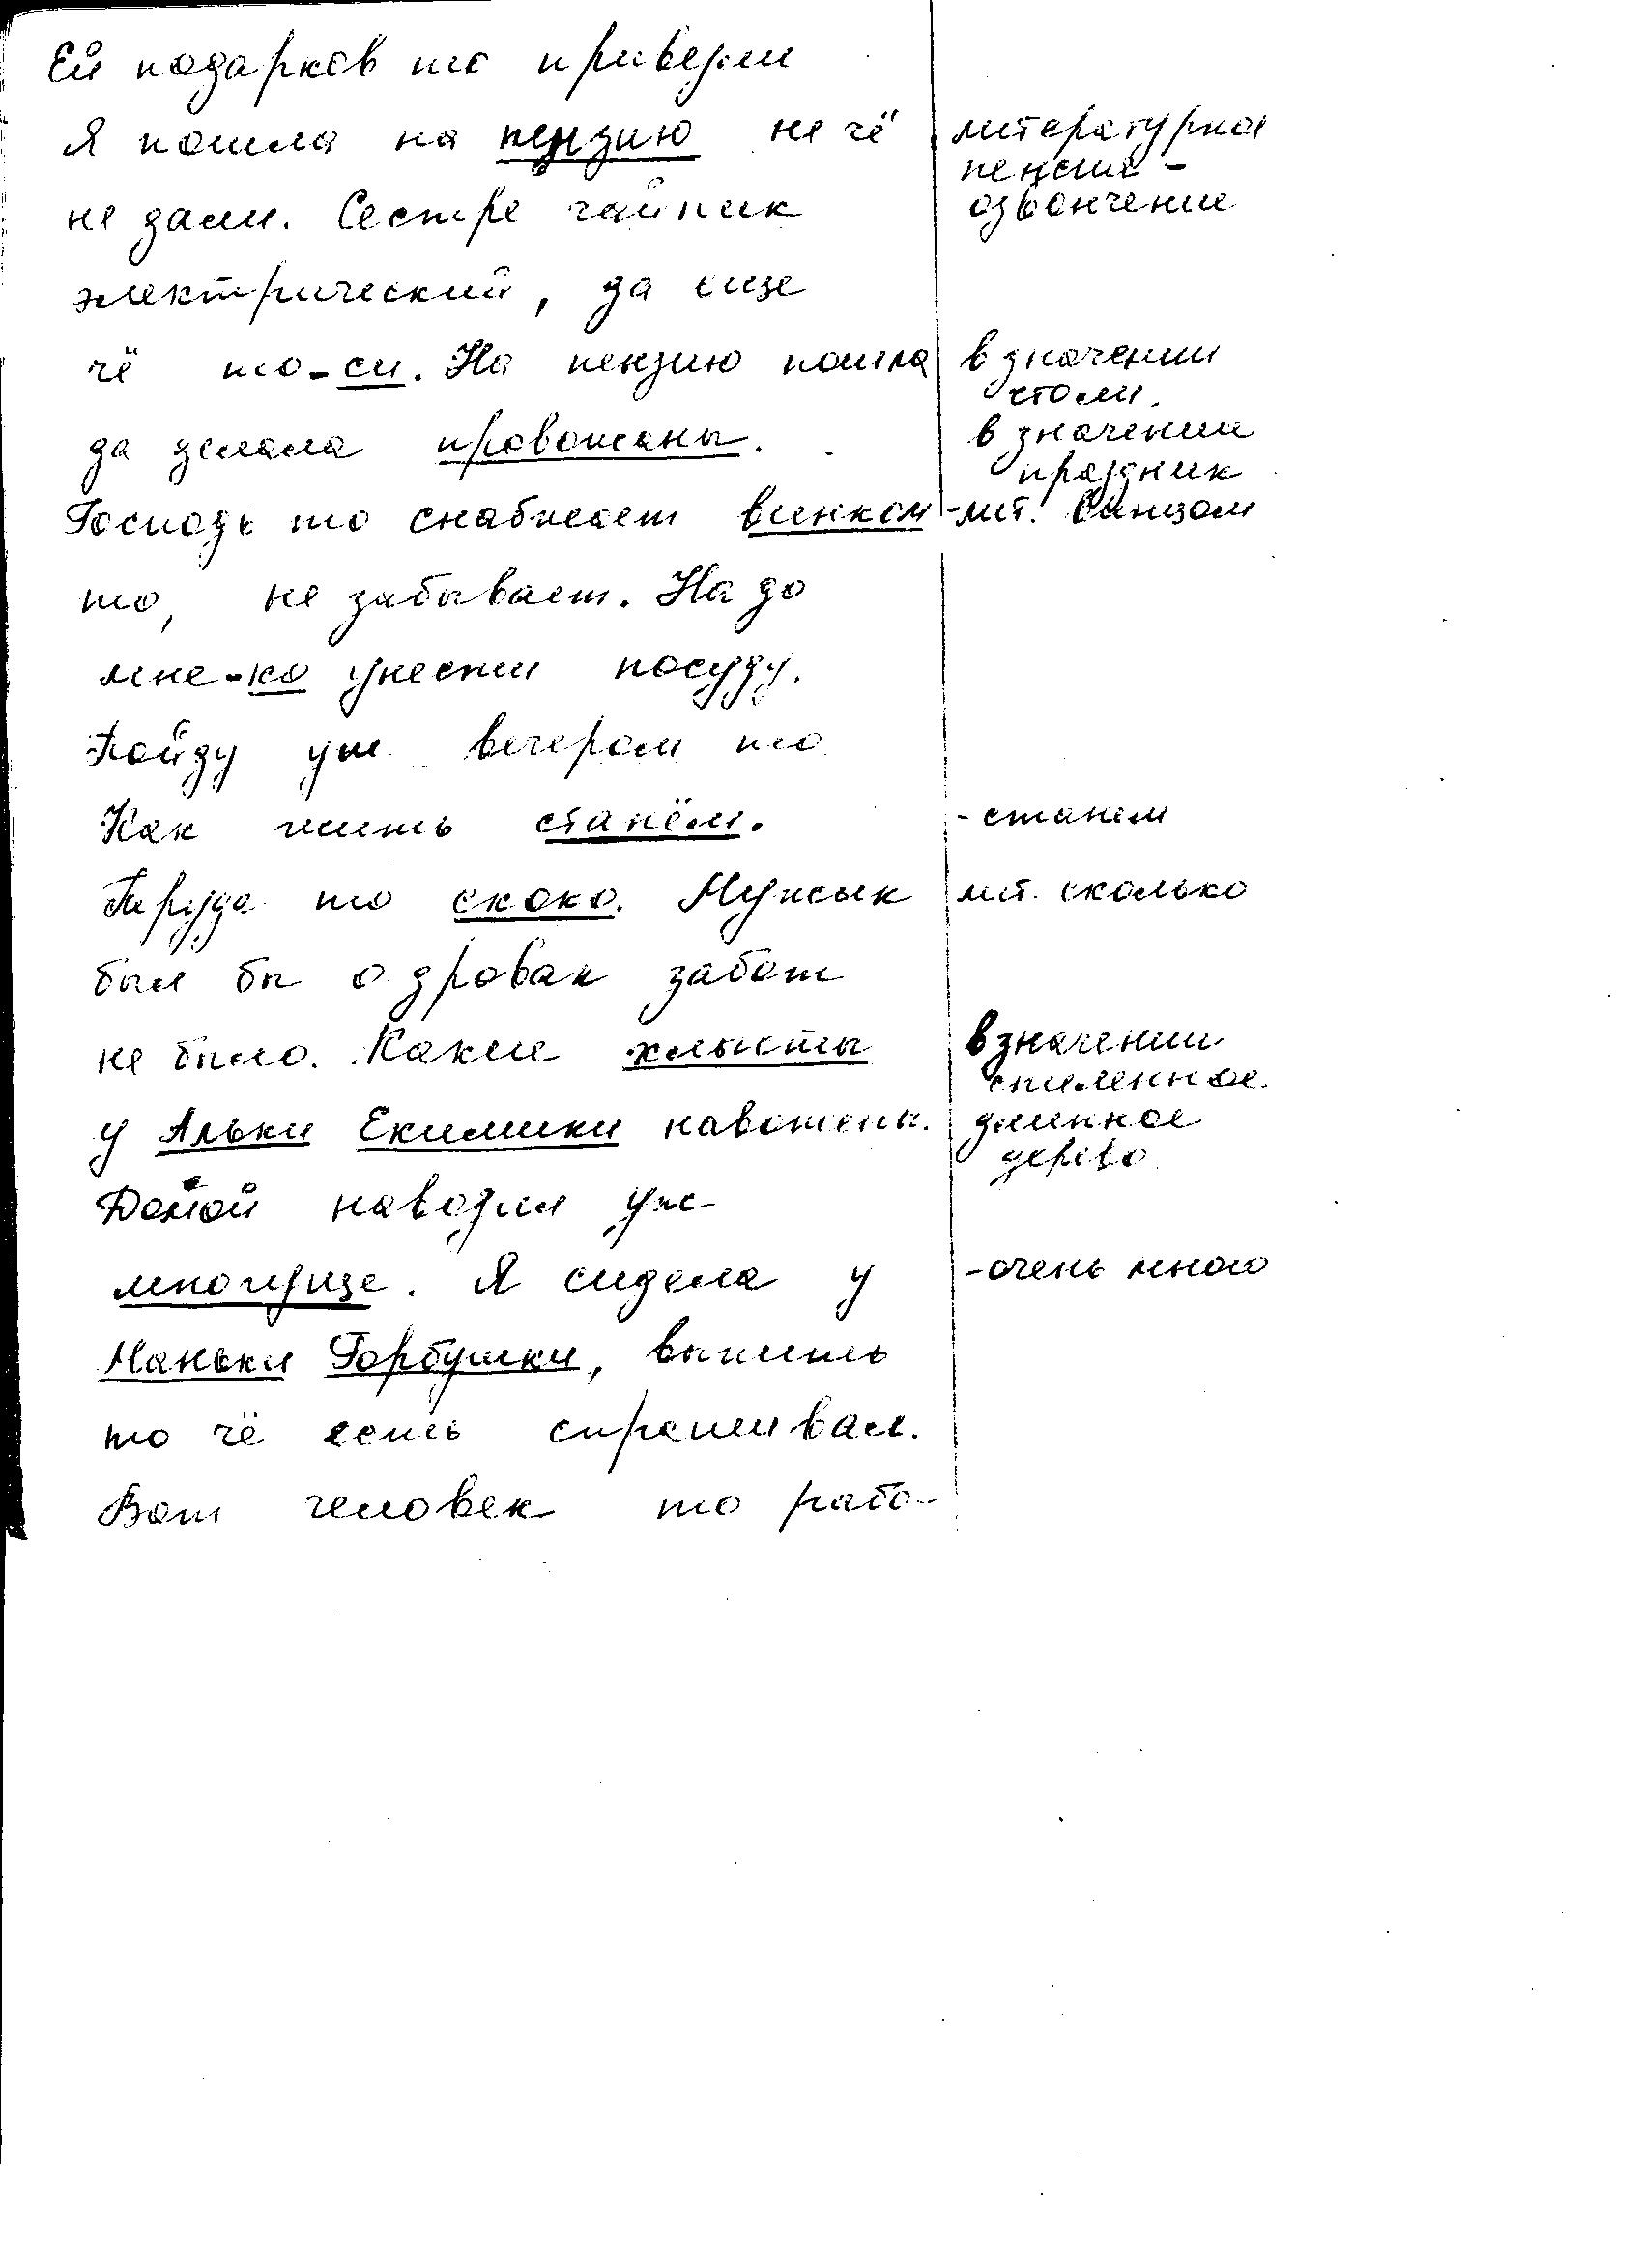 Ей подарков то привезли
Я пошла на пензию не чё
не дали. Сестре чайник
электрический, да еще
чё то-си. На пензию пошла
да делала провожаны.
Господь то снабжает виньком
то, не забывает. На до
мне-ко унести посуду.
Пойду уж вечером то
Как жить станём.
Труда то скоко. Мужык
был бы о дровах забот
не было. Какие хлысты
у Альки Екимихи навожены.
Домой наводил уж
многуще. Я сидела у
Маньки Горбушки, выпить
то чё есть спрашивал.
Вот человек то рабо-
литературное
пенсия -
озвончение
в значении
стоми.
в значении
праздник
-лит. Винцом
-станем
лит. сколько
в значении
спиленное
длинное
дерево
-очень много